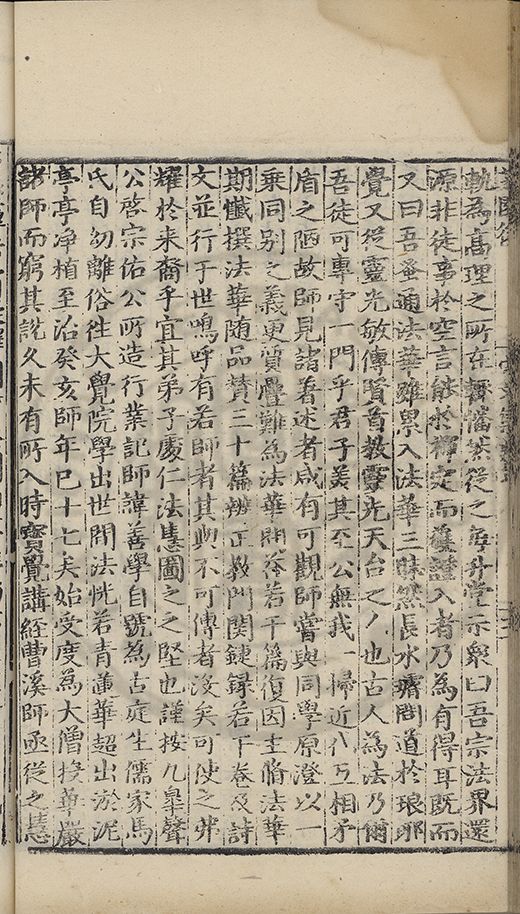 軌為高理之所在輙幡然從之每升堂示眾曰吾宗法界還
源非徒事於空言能於禪定而獲證入者乃為有得耳既而
又曰吾蚤通法華雖累入法華三昧然長水嘗問道於琅琊
覺又從靈光敏傳賢首教靈光天台之人也古人為法乃爾
吾徒可專守一門乎君子美其至公無我一歸近代互相矛
盾之陋故師見諸著述者咸有可觀師嘗與同學原澄以一
乘同別之義更質疊難為法華問荅若干篇復因主脩法華
期懺撰法華随品賛三十篇辨正教門関鍵録若干卷及詩
文並行于世嗚呼有若師者其與不可傳者没矣可使之弗
耀於来裔乎宜其弟子慶仁法慧圖之之堅也謹按九臯聲
公啓宗佑公所造行業記師諱善學自號為古庭生儒家馬
氏自幼離俗徃大覺院學出世間法恍若青蓮華超出淤泥
亭亭净植至治癸亥師年巳十七矣始受度為大僧授華嚴
諸師而窮其說久未有所入時寳覺講經曹溪師亟從之慧